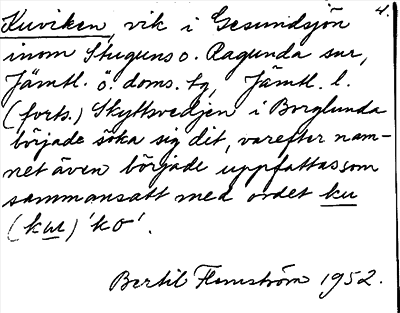 4.
Kuviken, vik i Gesundsjön
inom Stuguns o. Ragunda snr,
Jämtl. ö. doms. tg, Jämtl. l.
(forts.) Skyttsvedjen i Borglunda
började söka sig dit, varefter nam-
net även började uppfattas som
sammansatt med ordet ku
(kuu) 'ko'.
Bertil Flemström 1952.